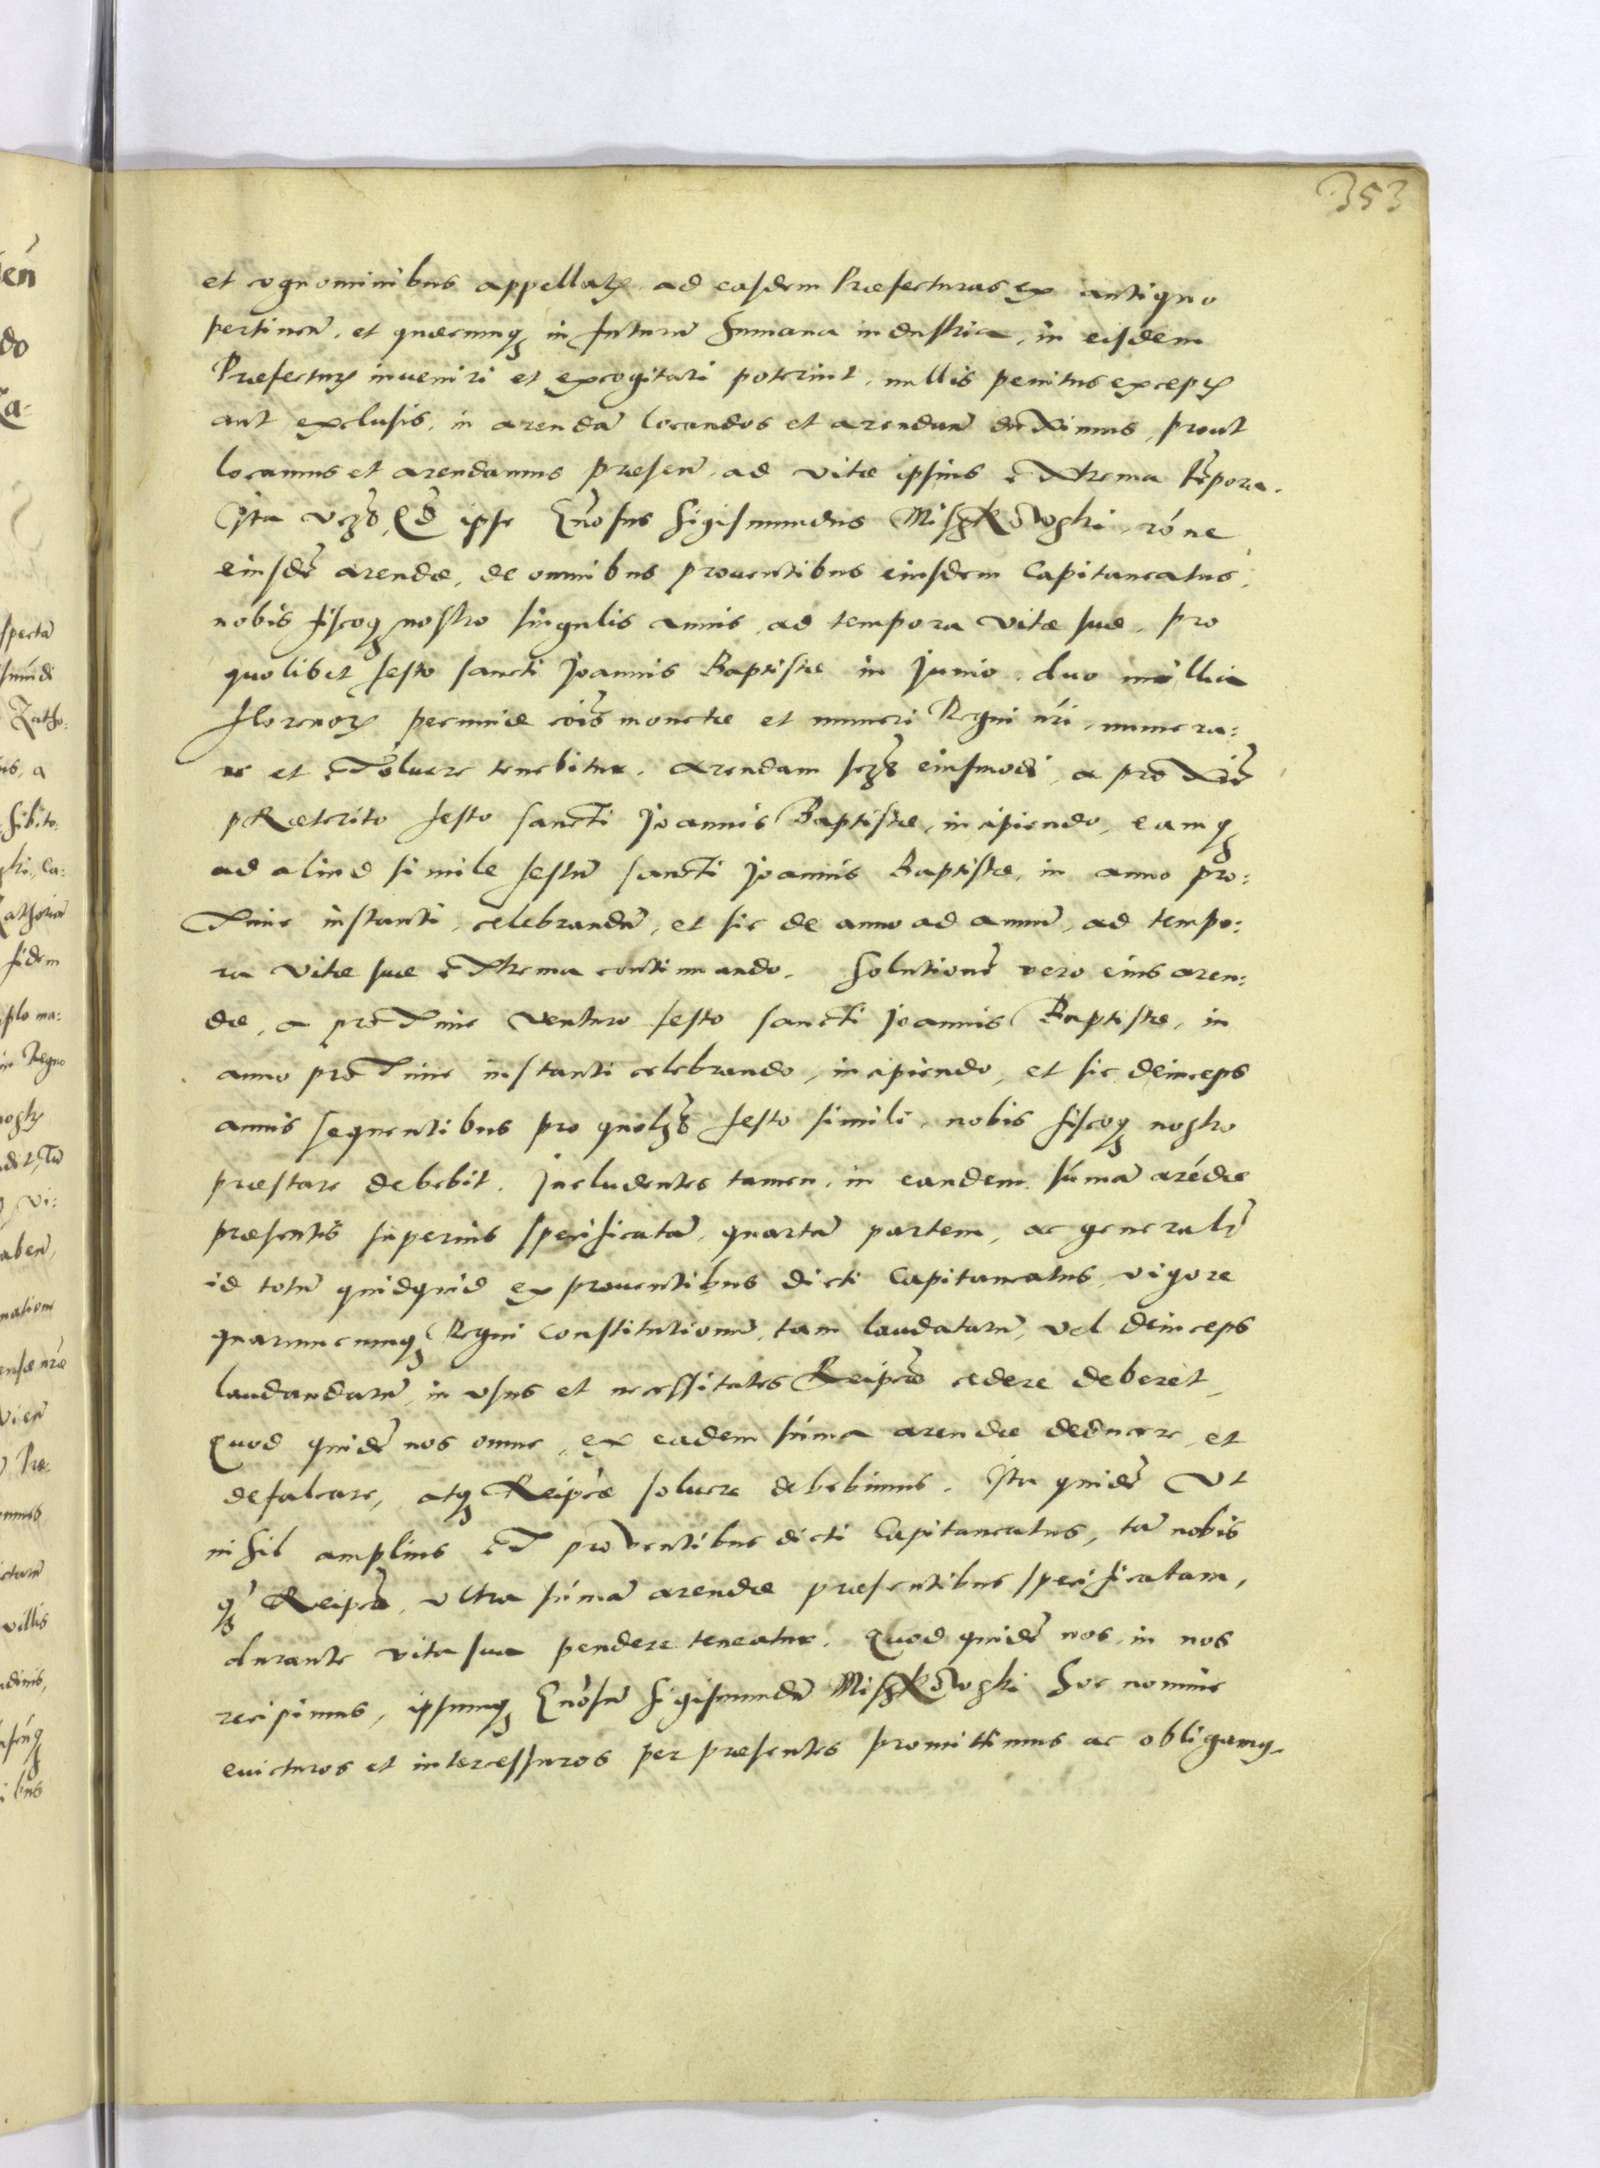 353
et cognominibus appellatꝭ ad easdem Præfecturas ex antiquo
pertineñ. et quæcunqꝫ in futurũ humana industria, in eisdem
Præfecturꝭ inveniri et excogitari poterint, nullis penitus exceptꝭ
aut exclusis, in arendã locandos et arendan̄ duximus, prout
locamus et arendamus præseñ, ad vitæ ipsius extrema tẽpora.
Ita , qđ ipse Gñosus Sigismundus Mischkowski, rõne
eiusdẽ arendæ, de omnibus proventibus eiusdem Capitaneatus,
nobis fiscoqꝫ nostro singulis annis, ad tempora vitæ suæ, pro
quolibet festo sancti Joannis Baptistæ in Junio, duo millia
florenoꝝ pecuniæ cõis monetæ et numeri Regni nr̃i, numera:
re et exolvere tenebitur. Arendam eiusmodi, a proxiẽ
præterito festo sancti Joannis Baptistæ, incipiendo, eamqꝫ
ad aliud simile festũ sancti Joannis Baptistæ, in anno pro:
xime instanti, celebrandũ, et sic de anno ad annũ, ad tempo:
ra vitæ suæ extrema continuando. Solutionẽ vero eius aren:
dæ, a proxime venturo festo sancti Joannis Baptistæ, in
anno proxime instanti celebrando, incipiendo, et sic deinceps
annis sequentibus pro quolꝫ festo simili, nobis fiscoqꝫ nostro
præstare debebit. Includentes tamen, in eandem sũmã arẽdæ
præsentis superius specificatã, quartã partem, ac generalr̃
id totũ quidquid ex proventibus dicti Capitaneatus, vigore
quarumcunqꝫ Regni Constitutionũ, tam laudatarũ, vel deinceps
laudandarũ, in usus et necessitates Reipcæ cedere deberet,
Quod quidẽ nos omne, ex eadem sũma arendæ deducere, et
defalcare, atqꝫ Reipcæ solvere debebimus. Ita quidẽ Ut
nihil amplius ex proventibus dicti Capitaneatus, tã nobis
qꝫ Reipcæ, ultra sũmã arendæ præsentibus specificatam,
durante vita sua pendere teneatur. Quod quidẽ nos, in nos
recipimus, ipsumqꝫ Gñosũ Sigismundũ Mischkowski hoc nomine
evicturos et intercessuros per præsentes promittimus ac obligamꝰ.